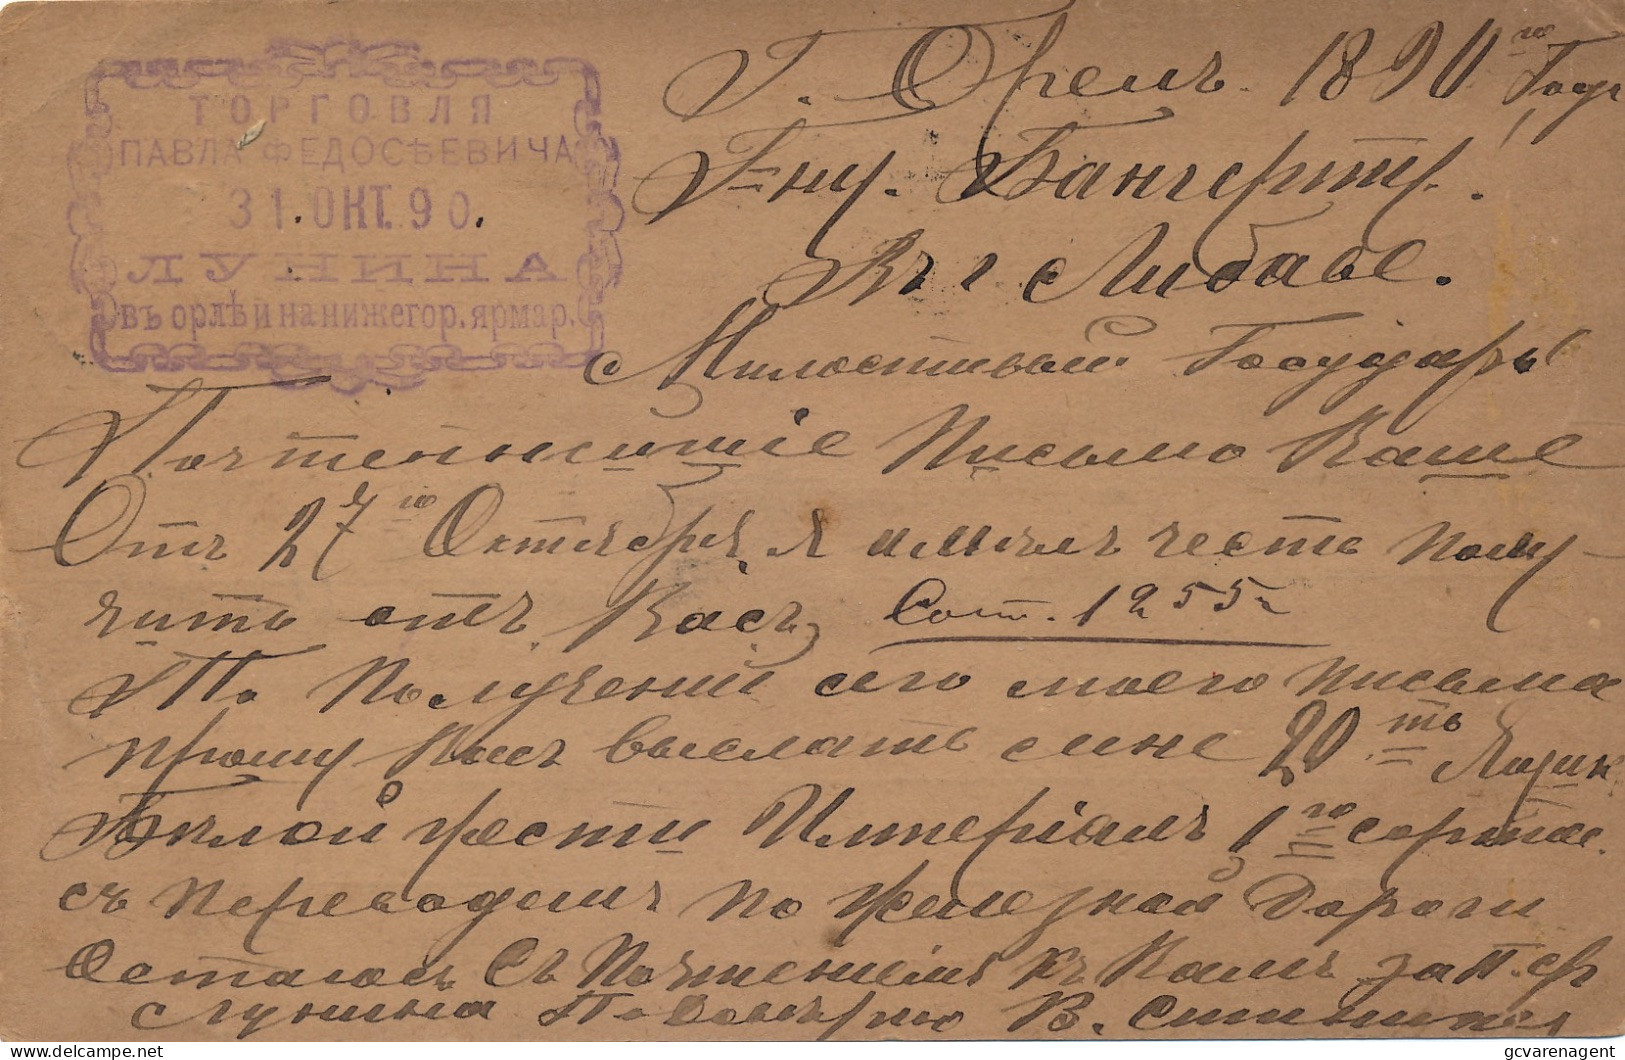 ТОРГОВЛЯ
ПАВЛА ФЕДОСѢЕВИЧА
31.ОКТ.90.
ЛУНИНА
въ орлѣ и на нижегор. ярмар.
Г. Орелъ. 1890го Году
Г=ну. Бангерту.
Въ г Либаве.
Милостивый Государь
Почтеннишие Письмо Ваше
Отъ 27го Октебря, я имелъ честь полу-
чить отъ Васъ,
По Получении сего моего письма
прошу Васъ выслать мне 20ть Ящик
Белой жести Империалъ 1го сорта
съ переводомъ по железной Дороги
Остаюсь Съ Почтениемъ къ Вамъ за П. Ф
Лунина По Доверию В.
delcampe.net
gcvarenagent